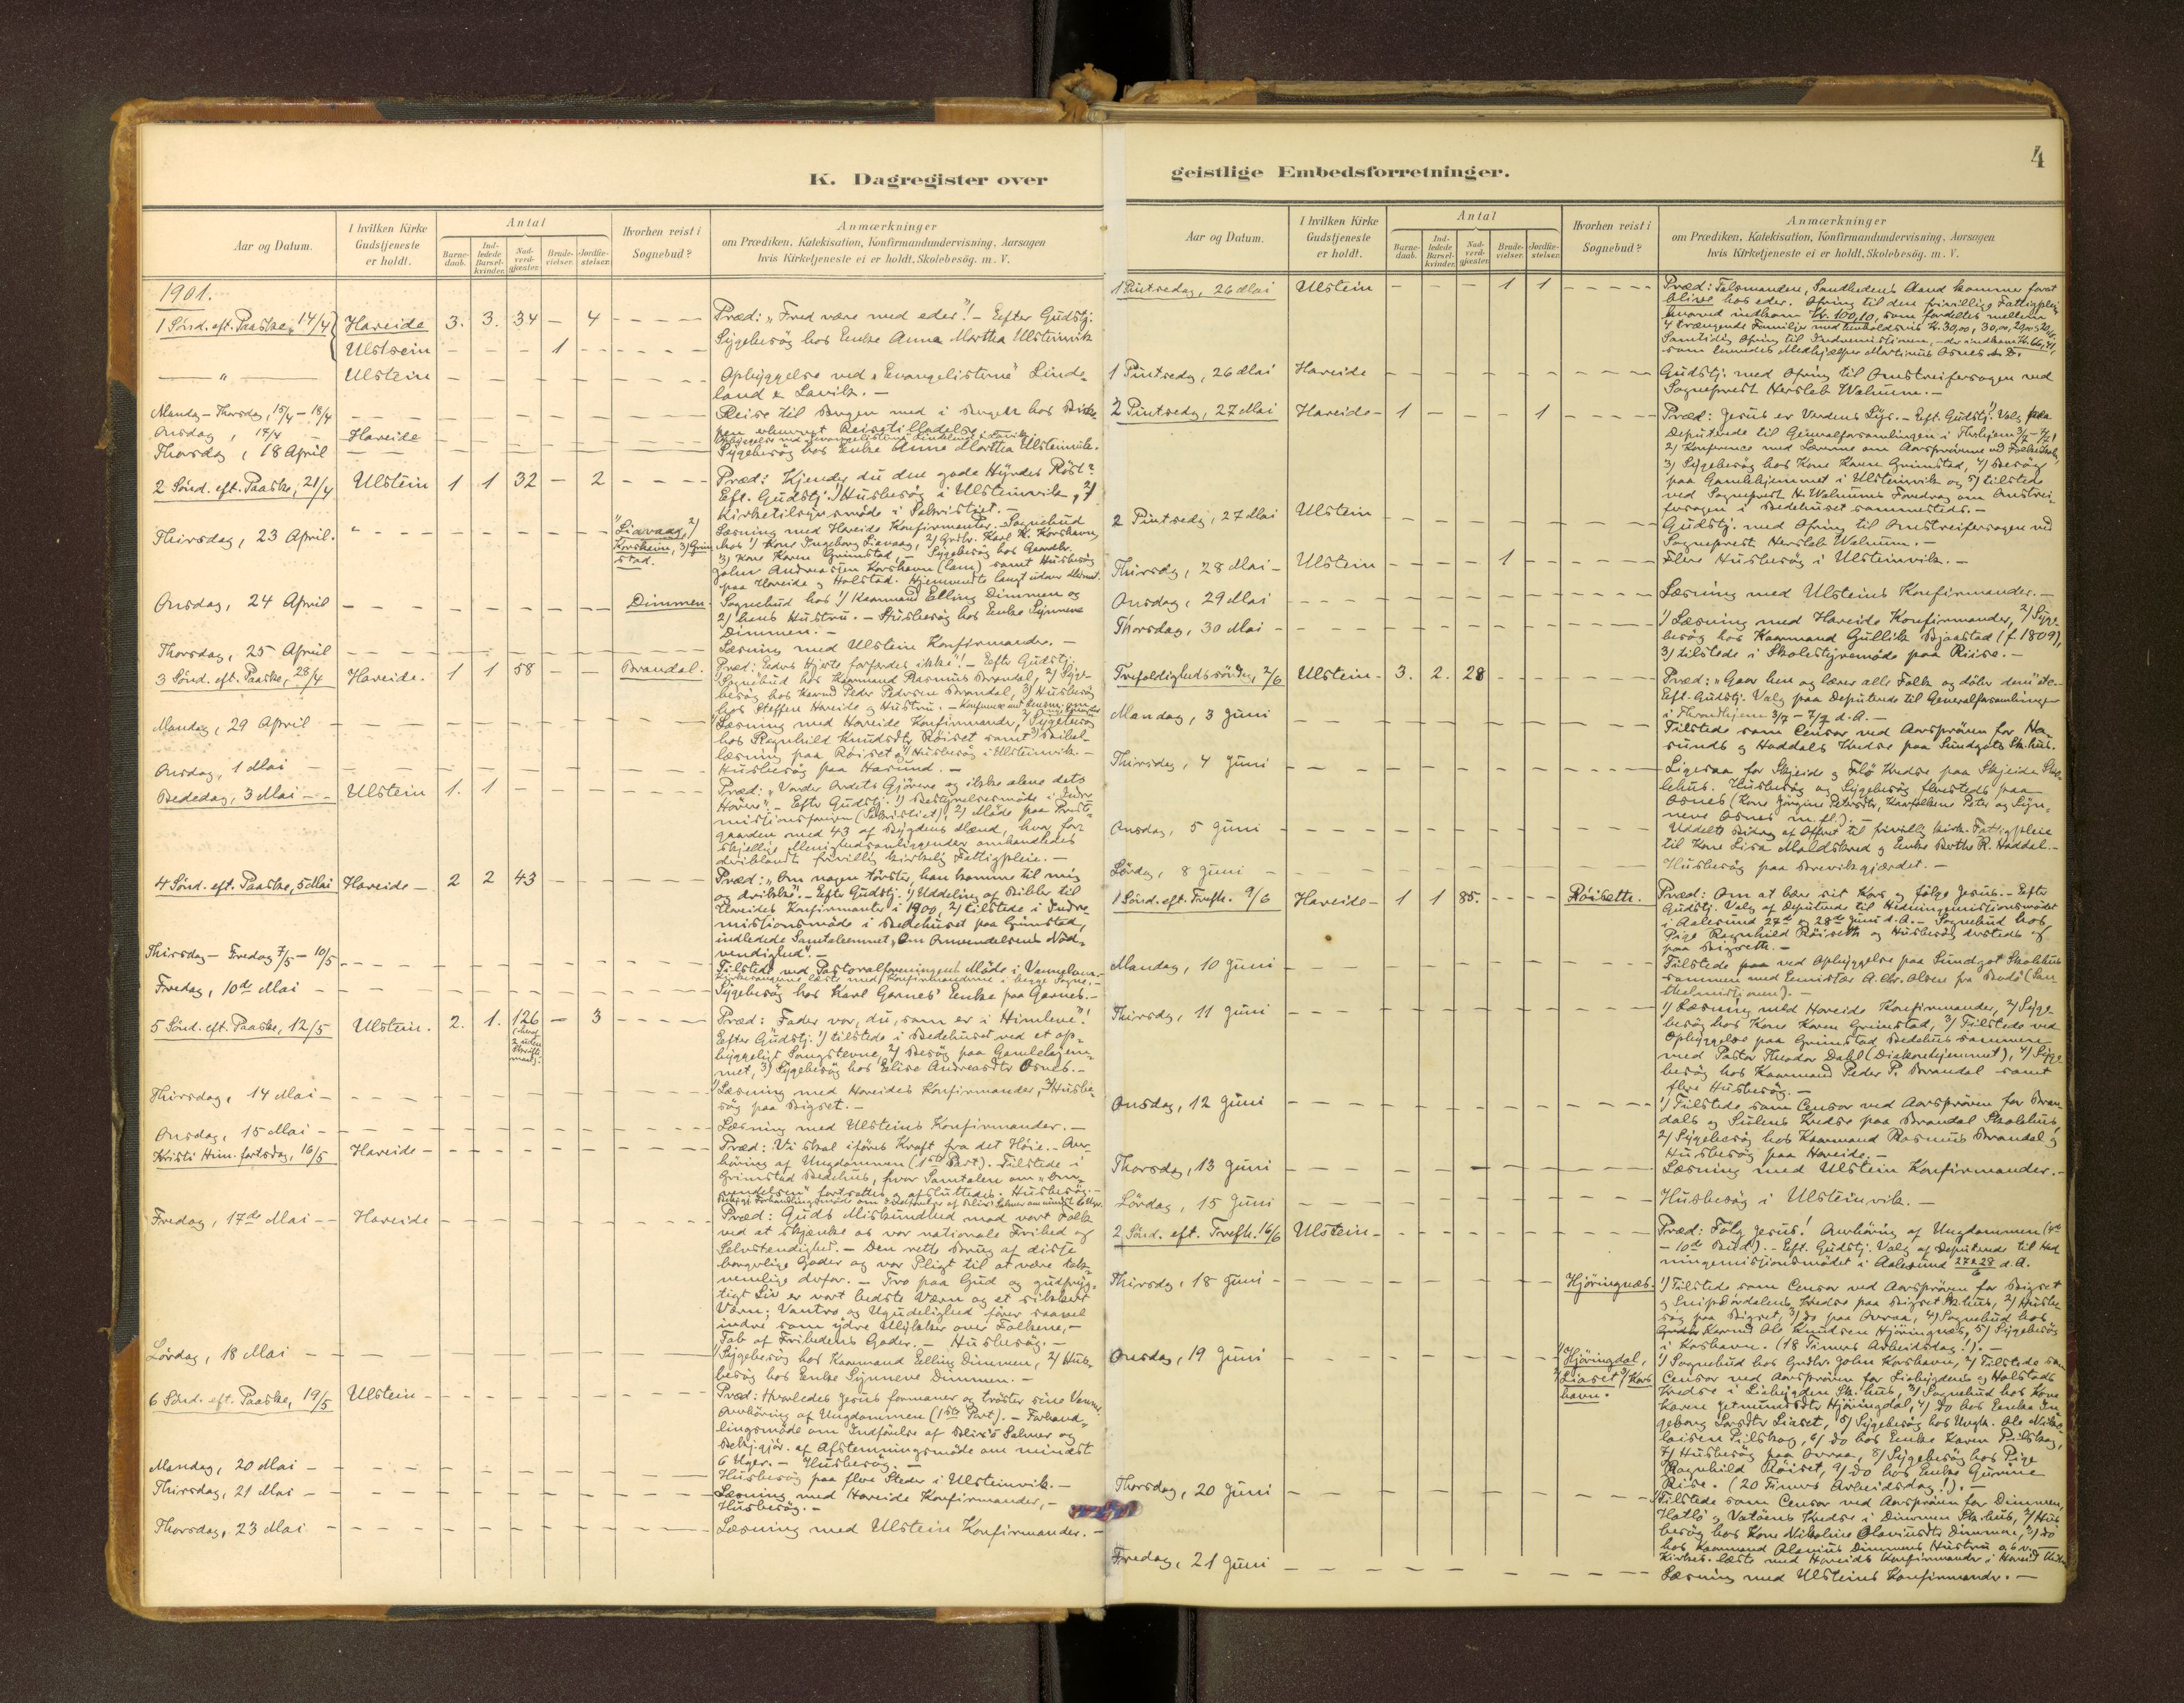 K. Dagregister over
Aar og Datum.
I hvilken Kirke
Gudstjeneste
er holdt.
Antal
Barne-
daab.
Ind-
ledede
Barsel-
kvinder.
Nad-
verd-
gjæster.
Brude-
vielser.
Jordfæ-
stelser.
Hvorhen reist i
Sognebud?
Anmærkninger
om Prædiken, Katekisation, Konfirmandundervisning, Aarsagen
hvis Kirketjeneste ei er holdt, Skolebesög. m. V.
1901.
1 Sönd. eft. Paaske, 14/4 Hareide 3. 3. 34 — 4 Præd: "Fred være med eder"! — Eefter Gudstj.
Ulstsein — — — 1 Sygebesög hos Enke Anna Martha Ulsteinvik
— " — Ulstein Opbyggelse ved "Evangelisterne" Linde-
land & Lavik. —
Mandag — Thorsdag, 15/4 — 18/4 Reise til Bergen med i
Onsdag, 17/4 — Hareide
Thorsdag, 18 April Sygebesög hos Enke Anne Martha Ulsteinvik.
2 Sönd. eft. Paaske, 21/4 Ulstein 1 1 32 — 2 Præd: Kjender du den gode Hyrdes Röst?
Eft. Gudstj. 1) Husbesög i Ulsteinvik, 2)
Kirketilsynsmöde i Sakristiet. —
Thirsdag, 23 April. Liavaag, 2) Læsning med Hareide Konfirmanter. Sognebud
Korshavn, 3) Grim- hos 1) Kone Ingeborg Liavaag, 2) Grdbr. Karl K. Korshavn,
stad. 3) Kone Karen Grimstad, — Sygebesög hos Gaardbr.
John Andreassen Korshavn (lam) samt Husbesög
paa Hareide og Holstad. Hjemvendte langt udover Midnat.
Onsdag, 24 April Dimmen. Sognebud hos 1) Kaarmand Elling Dimmen og
2) hans Hustru. — Husbesög hos Enke Synneve
Dimmen. —
Thorsdag, 25 April Læsning med Ulstein Konfirmander. —
3 Sönd. eft. Paaske, 28/4 Hareide. 1 1 58 — — Brandal. Præd: Eders Hjerte forfærdes ikke"! — Eefter Gudstj.
Sognebud hos Kaarmand Rasmus Brandal, 2) Syge-
besög hos Kaarmd Peder Pedersen Brandal, 3) Husbesög
hos Steffen Hareide og Hustru. —
Mandag, 29 April 1) Læsning med Hareide Konfirmander, 2) Sygebesög
hos Ragnhild Knudsdtr Röiset samt 3) Bibel-
læsning paa Röiset, 4) Husbesög i Ulsteinvik. —
Onsdag, 1 Mai Husbesög paa Hasund. —
Bededag, 3 Mai Ulstein 1. 1 Præd: "Vorder Ordets Gjörere og ikke alene dets
Hörere". — Efter Gudstj. 1) Bestyrelsesmöde i Indre-
missionsforen. (Sakristiet), 2) Möde paa Præst-
gaarden med 43 af Bygdens Mænd, hvor for-
skjellige Menighedsanliggender omhandledes
deriblandt frivillig kirkelig Fattigpleie. —
4 Sönd. eft. Paaske, 5 Mai Hareide — 2 2 43 Præd: "Om nogen törster, han komme til mig
og drikke". — Efter Gudstj. 1) Uddeling af Bibler til
Hareides Konfirmanter i 1900, 2) tilstede i Indre-
missionsmöde i Bedehuset paa Grimstad,
indledede Samtaleemnet "Om Omvendelsens Nöd-
vendighed". —
Thirsdag — Fredag 7/5 — 10/5 Tilstede ved Pastoralforeningens Möde i Vannelven. —
Fredag, 10de Mai Sygebesög hos Karl Garnes' Enke paa Garnes. —
5 Sönd. eft. Paaske, 12/5 Ulstein. 2. 1. 126 — 3 Præd: Fader vor, du, som er i Himlene"!
Eefter Gudstj. 1) tilstede i Bedehuset ved et op-
byggeligt Sangstevne, 2) Besög paa Gamlehjem-
met, 3) Sygebesög hos Elise Andreasdtr Osnes. —
Thirsdag, 14 Mai 1) Læsning med Hareides Konfirmander, 2) Husbe-
sög paa Bigset. —
Onsdag, 15 Mai Læsning med Ulsteins Konfirmander. —
Kristi Him. fartsdag, 16/5 Hareide Præd: Vi skal iföres Kraft fra det Höie. — Over-
höring af Ungdommen (1ste Part). — Tilstede i
Grimstad Bedehus, hvor Samtalen om "Om-
vendelsen" fortsattes og afsluttedes. Husbesög. —
Fredag, 17de Mai — Hareide Præd: Guds Miskundhed mod vort Folk
ved at skjænke os vor nationale Frihed og
Selvstændighed. — Den rette Brug af disse
borgerlige Goder og vor Pligt til at være tak-
nemlige derfor. — Tro paa Gud og gudfryg-
tigt Liv er vort bedste Værn og et sikkert
Værn; Vantro og Ugudelighed förer saavel
indre som ydre Ulykker over Folkene, —
Tab af Frihedens Goder. — Husbesög. —
Lördag, 18 Mai 1) Sygebesög hos Kaarmand Elling Dimmen, 2) Hus-
besög hos Enke Synneve Dimmen. —
6 Sönd. eft. Paaske, 19/5 Ulstein Præd: Hvorledes Jesus formaner og tröster sine Venner.
Overhöring af Ungdommen (1ste Part). — Forhand-
lingsmöde om Indförelse af Blix's Salmer og
Bekjgjör. af Afstemningsmöde om mindst
6 Uger. — Husbesög. —
Mandag, 20 Mai Husbesög paa flere Steder i Ulsteinvik. —
Thirsdag, 21 Mai Læsning med Hareide Konfirmander, —
Husbesög. —
Thorsdag, 23 Mai Læsning med Ulstein Konfirmander. —
4
geistlige Embedsforretninger.
Aar og Datum.
I hvilken Kirke
Gudstjeneste
er holdt.
Antal
Barne-
daab.
Ind-
ledede
Barsel-
kvinder.
Nad-
verd-
gjæster.
Brude-
vielser.
Jordfæ-
stelser.
Hvorhen reist i
Sognebud?
Anmærkninger
om Prædiken, Katekisation, Konfirmandundervisning, Aarsagen
hvis Kirketjeneste ei er holdt, Skolebesög. m. V.
1 Pintsedag, 26 Mai Ulstein — — — 1 1 Præd: Talsmanden, Sandhedens Aand kommer forat
blive hos eder. Ofring til den frivillige Fattigpleie
hvorved indkom Kr. 100,10, som fordeltes mellem
4 trængende Familjer med
Samtidig Ofring til Indremissionen,
som Medhjælper Martinus Osnes
1 Pintsedg, 26 Mai Hareide Gudstj. med Ofring til Omstreifersagen ved
Sogneprest Hersleb Walnum. —
2 Pintsedg, 27 Mai Hareide — 1 — — — 1 Præd: Jesus er Verdens Lys. — Eft. Gudstj. 1) Valg paa
Deputerede til Generalforsamlingen i Thrhjem 3/7 — 7/7,
2) Konference med Lærerne om Aarsprøverne ved Folkeskolen,
3) Sygebesög hos Kone Karen Grimstad, 4) Besög
paa Gamlehjemmet i Ulsteinvik og 5) tilstede
ved Sogneprest H. Walnums Foredrag om Omstrei-
fersagen i Bedehuset sammesteds. —
2 Pintsedg, 27 Mai Ulstein Gudstj. med Ofring til Omstreifersagen ved
Sogneprest Hersleb Walnum. —
Thirsdg, 28 Mai — Ulstein — — — 1 Flere Husbesög i Ulsteinvik. —
Onsdag, 29 Mai Læsning med Ulsteins Konfirmander. —
Thorsdag, 30 Mai 1) Læsning med Hareide Konfirmander, 2) Syge-
besög hos Kaarmand Gullik Bjaastad (f 1809),
3) tilstede i Skolestyremöde paa Riise. —
Trefoldighedssöndag, 2/6 Ulstein 3. 2. 28 Præd: "Gaar hen og lærer alle Folk og döber dem" etc. —
Eft. Gudstj. Valg paa Deputerede til Generalforsamlingen
i Throndhjem 3/7 — 7/7 d. A. —
Mandag, 3 Juni Tilstede som Censor ved Aarsprøven for Ha-
sunds og Haddals Kredse paa Sundgots Sk.hus.
Thirsdag, 4 Juni Ligesaa for Skjeide og Flö Kredse paa Skjeide Sko-
lehus. Husbesög og Sygebesög flersteds paa
Osnes (Kone Jörgine Petersdtr, Kaarfolkene Peter og Syn-
neve Osnes m. fl.). —
Onsdag, 5 Juni Uddelte Bidrag af Offret til frivillig kirk. Fattigpleie
til Kone Lisa Maldskred og Enke Berthe R. Haddal. —
Lördag, 8 Juni Husbesög paa Brevikgjærdet. —
1 Sönd. eft. Trefh. 9/6 Hareide — 1 1 85. Röiseth. Præd: Om at bære sit Kors og fölge Jesus. — Eefter
Gudstj. Valg af Deputerede til Hedningemissionsmödet
i Aalesund 27de og 28de Juni d. A. — Sognebud hos
Pige Ragnhild Röiseth og Husbesög dersteds og
paa Bigseth. —
Mandag, 10 Juni Tilstede paa ved Opbyggelse paa Sundgot Skolehus
sammen med Emissær A. Chr. Olsen fra Bodö (San-
thalmissionen). —
Thirsdg, 11 Juni 1) Læsning med Hareide Konfirmander, 2) Syge-
besög hos Kone Karen Grimstad, 3) Tilstede ved
Opbyggelse paa Grimstad Bedehus sammen
med Pastor Theodor Dahl (Diakonhjemmet), 4) Syge-
besög hos Kaarmand Peder P. Brandal samt
flere Husbesög. —
Onsdag, 12 Juni 1) Tilstede som Censor ved Aarsprøven for Bran-
dals og Sulens Kredse paa Brandal Skolehus,
2) Sygebesög hos Kaarmand Rasmus Brandal og
Husbesög paa Hareide. —
Thorsdag, 13 Juni Læsning med Ulstein Konfirmander. —
Lördag, 15 Juni Husbesög i Ulsteinvik. —
2 Sönd. eft. Trefh. 16/6 Ulstein Præd: Fölg Jesus! Overhöring af Ungdommen (4de
— 10de Bud). — Eft. Gudstj. Valg af Deputerede til Hed-
ningemissionsmödet i Aalesund 27 & 28/6 d. A.
Thirsdag, 18 Juni Hjöringnæs. 1) Tilstede som Censor ved Aarsprøven for Bigset
og Snipsördalens Kredse paa Bigset Sk.hus, 2) Husbe-
sög paa Bigset, 3) do paa Ovraa, 4) Sognebud hos
Kaarmd Ole Knudsen Hjöringnæs, 5) Sygebesög
i Korshavn. (18 Timers Arbeidsdag!). —
Onsdag, 19 Juni Hjöringdal, 1) Sognebud hos Grdbr. John Korshavn, 2) Tilstede som
Liaset, Kors- Censor ved Aarsprøven for Liabygdens og Holstads
havn. Kredse i Liabygden Sk.hus, 3) Sognebud hos Kone
Karen Getmundsdtr Hjöringdal, 4) do hos Enke In-
geborg Larsdtr Liaset, 5) Sygebesög hos Ungk. Ole Niko-
laisen Pilskog, 6) do hos Enke Karen Pilskog,
7) Husbesög paa Ovraa, 8) Sygebesög hos Pige
Ragnhild Röiset, 9) do hos Enke Gurine
Riise. (20 Timers Arbeidsdag!). —
Thorsdag, 20 Juni 1) Tilstede som Censor ved Aarsprøven for Dimmen,
Hatlö og Vatöens Kredse i Dimmen Sk.hus, 2) Hus-
besög hos Kone Nikoline Olaviusdtr Dimmen, 3) do
hos Kaarmand Olavius Dimmens Hustru
læste med Hareids Konfirmander i Hareid Kirke
Fredag, 21 Juni Læsning med Ulsteins Konfirmandr. —